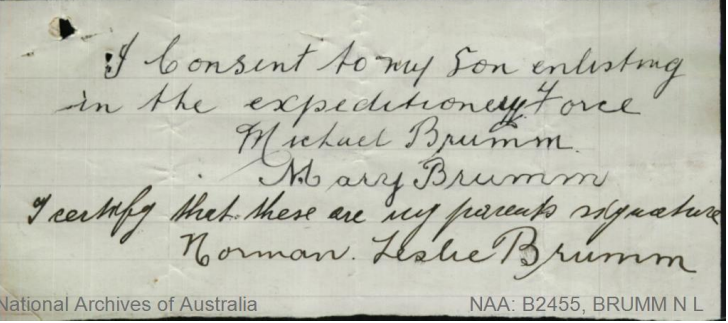 I Consent to my Son enlisting
in the expeditionery Force
Michael Brumm.
Mary Brumm
I certify that these are my parents signature
Norman. Leslie Brumm
National Archives of Australia
NAA: B2455, BRUMM N L